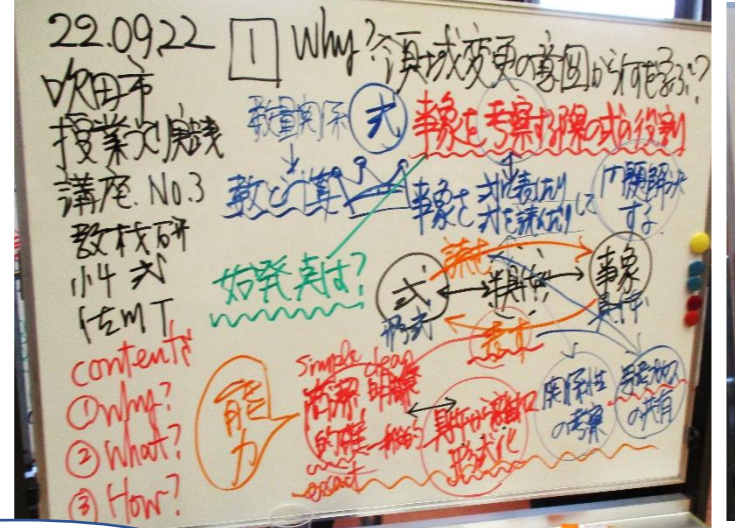 22.09.22
吹田市
授業実践
講座.No.3
教材研
小4 式
佐MT
contents
①Why?
②What?
③How?
1 Why? 領域変更の意図から何を学ぶ?
数量関係 式 事象を考察する際の式の役割
数と計算
事象を 式に表したり 式を読んだりして 問題解決する
始発点は?
式 形式
読む
表す
事象 具体
能力
simple clean
簡潔 明瞭
的確 一般的
exact
具体から
形式化
関係性の考察
思考プロセスの共有